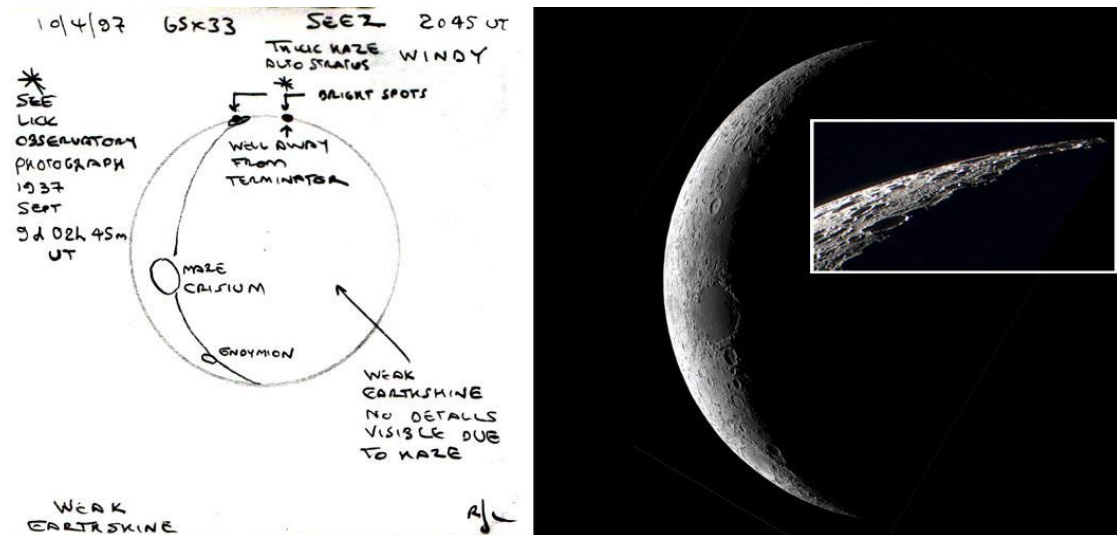 10/4/97 65x33 SEE 2 2045 UT
THICK HAZE
ALTO STRATUS
WINDY
*
SEE
LICK
OBSERVATORY
PHOTOGRAPH
1937
SEPT
9d 02h 45m
UT
*
BRIGHT SPOTS
WELL AWAY
FROM
TERMINATOR
MARE
CRISIUM
ENDYMION
WEAK
EARTHSHINE
NO DETAILS
VISIBLE DUE
TO HAZE
WEAK
EARTHSHINE